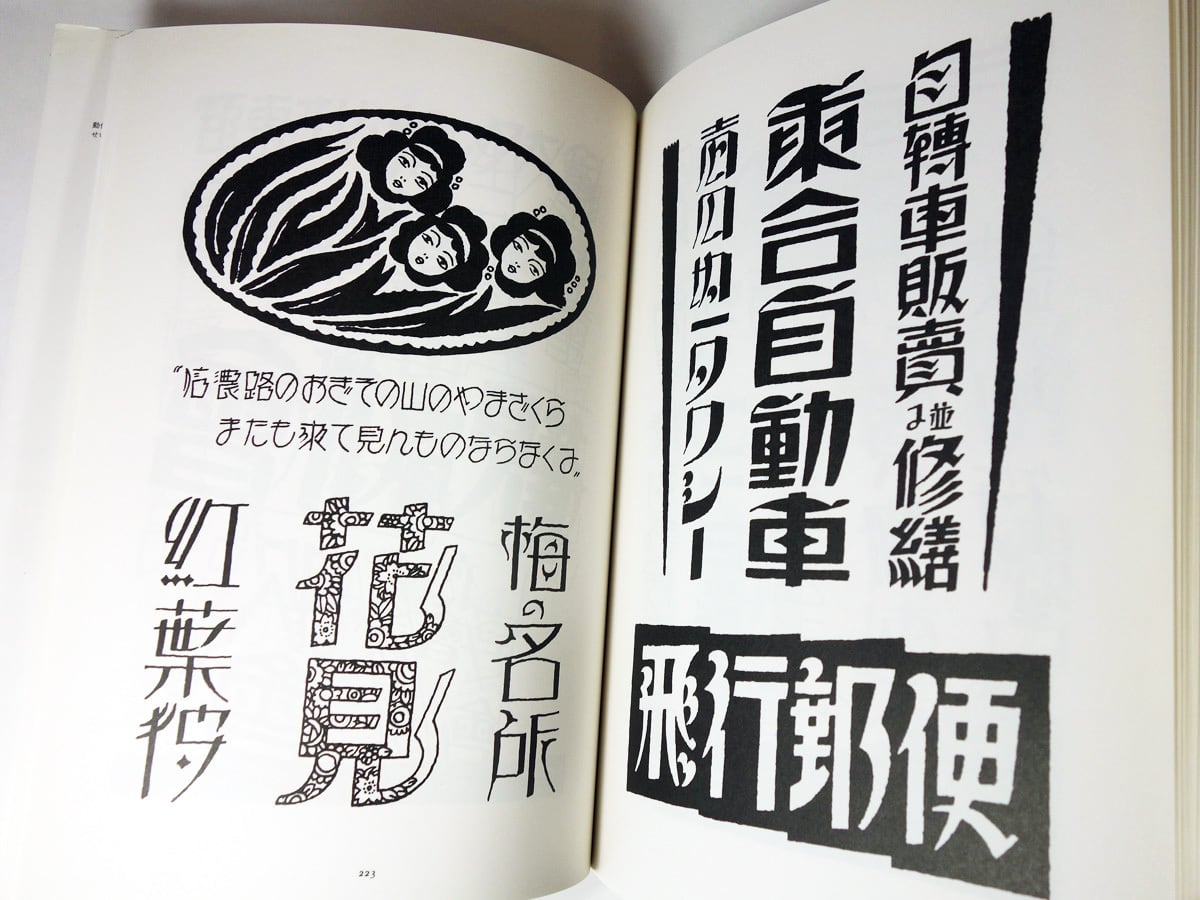 〝信濃路のおぎその山のやまざくら
またも来て見んものならなくに〟
梅の名所
花見
紅葉狩
223
自轉車販賣並に修繕
乗合自動車
均一タクシー
飛行郵便